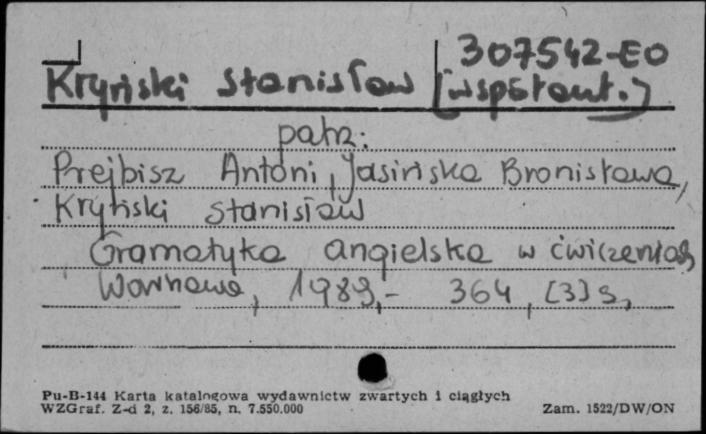 307542-EO
Kryński Stanisław [współaut.]
patrz:
Prejbisz Antoni, Jasińska Bronisława,
Kryński Stanisław
Gramatyka angielska w ćwiczeniach,
Warszawa, 1989,- 364, [3] s,
Pu-B-144 Karta katalogowa wydawnictw zwartych i ciągłych
WZGraf. Z-d 2, z. 156/85, n. 7.550.000 Zam. 1522/DW/ON